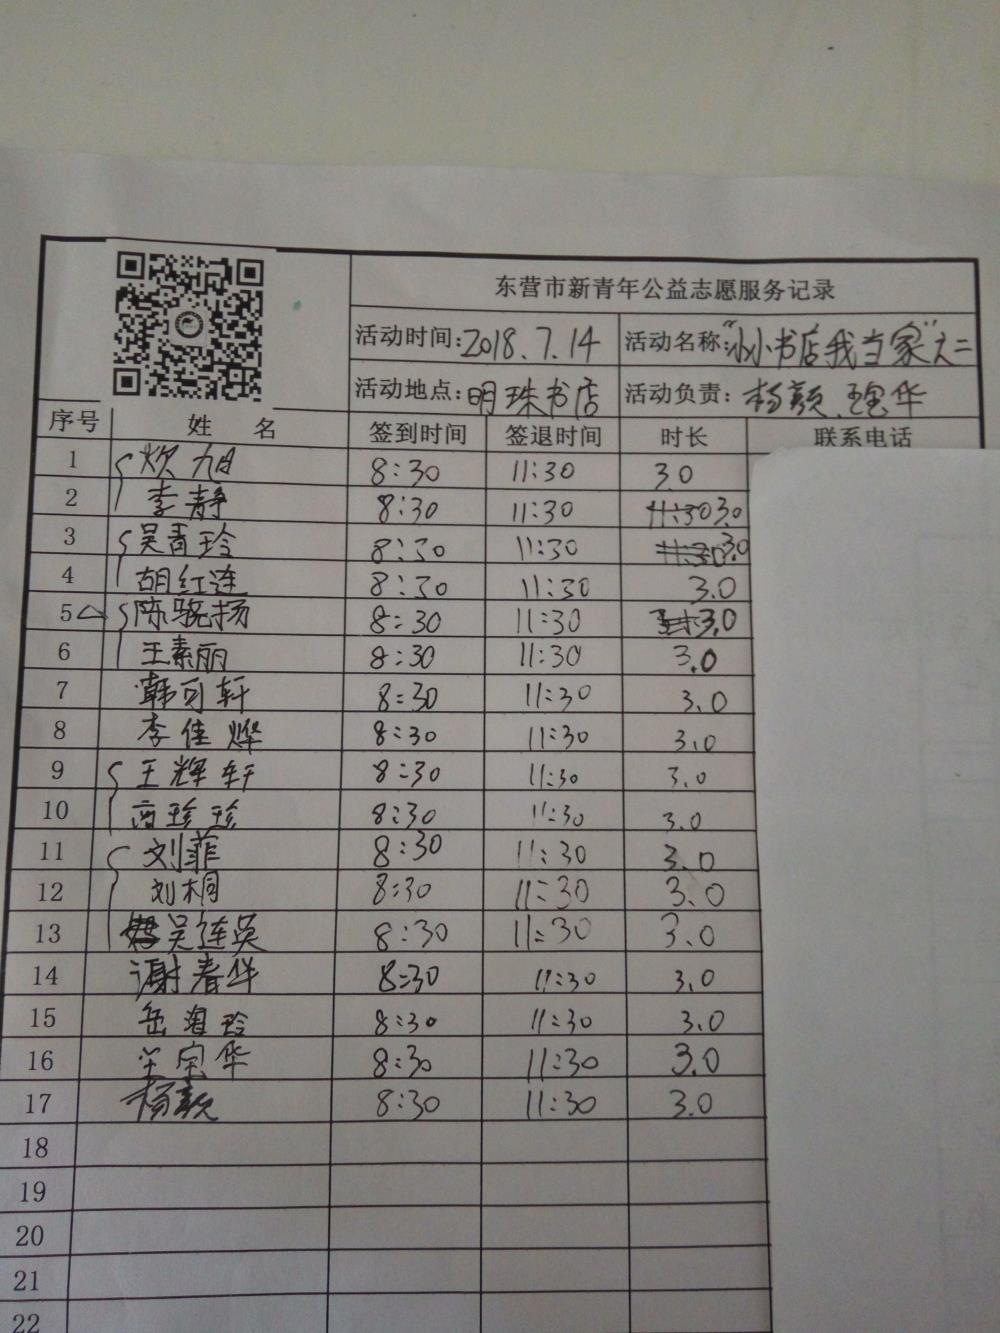 东营市新青年公益志愿服务记录
活动时间:2018.7.14 活动名称:"小小书店我当家"
活动地点:明珠书店 活动负责:杨颖
序号 姓 名 签到时间 签退时间 时长 联系电话
1 旭 8:30 11:30 3.0
2 李静 8:30 11:30 3.0
3 吴青玲 8:30 11:30 3.0
4 胡红连 8:30 11:30 3.0
5 陈骁扬 8:30 11:30 3.0
6 王素丽 8:30 11:30 3.0
7 韩可轩 8:30 11:30 3.0
8 李佳烨 8:30 11:30 3.0
9 王辉轩 8:30 11:30 3.0
10 商珍珍 8:30 11:30 3.0
11 刘菲 8:30 11:30 3.0
12 刘桐 8:30 11:30 3.0
13 吴连英 8:30 11:30 3.0
14 谢春华 8:30 11:30 3.0
15 岳海玲 8:30 11:30 3.0
16 华 8:30 11:30 3.0
17 杨颖 8:30 11:30 3.0
18
19
20
21
22